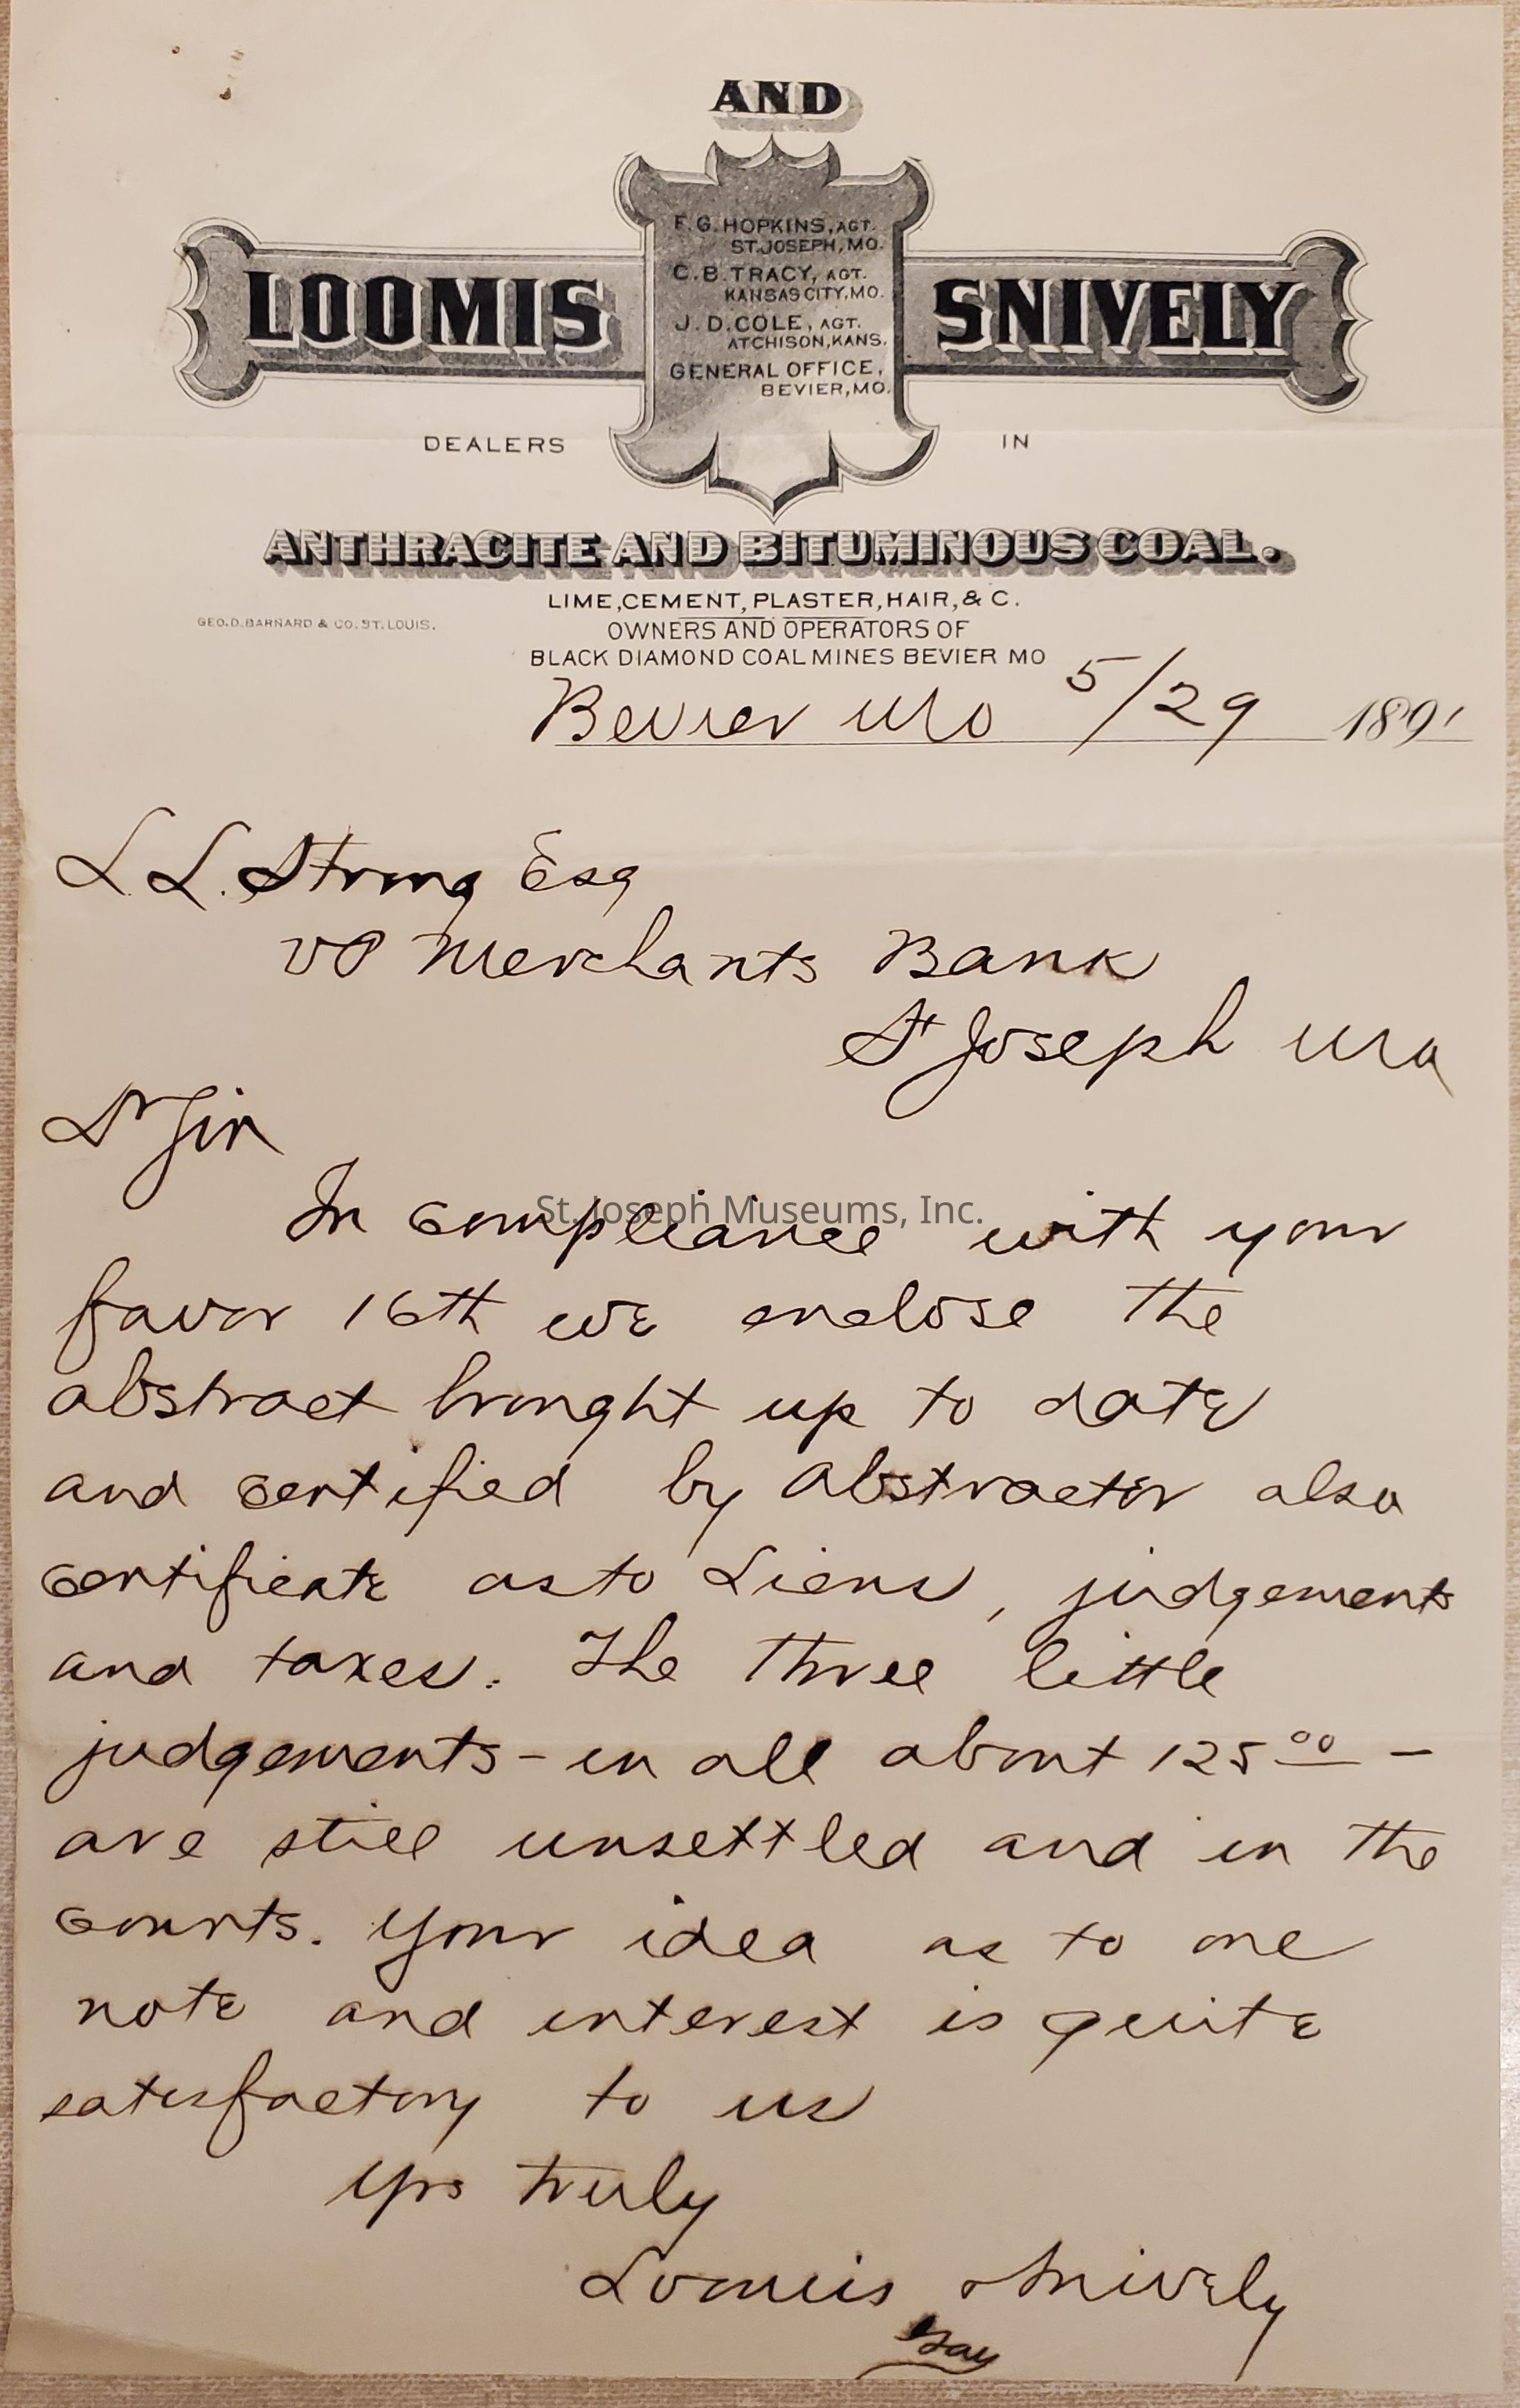 AND
LOOMIS
SNIVELY
F.G. HOPKINS, AGT.
ST. JOSEPH, MO.
C.B. TRACY, AGT.
KANSAS CITY, MO.
J.D. COLE, AGT.
ATCHISON, KANS.
GENERAL OFFICE,
BEVIER, MO.
DEALERS IN
ANTHRACITE AND BITUMINOUS COAL.
LIME, CEMENT, PLASTER, HAIR, & C.
GEO. D. BARNARD & CO. ST. LOUIS.
OWNERS AND OPERATORS OF
BLACK DIAMOND COAL MINES BEVIER MO
Bevier Mo 5/29 1891
L.L. Strong Esq
VP Merchants Bank
St Joseph Mo
Dr Sir
St. Joseph Museums, Inc.
In compliance with your
favor 16th we enclose the
abstract brought up to date
and certified by abstractor also
certificate as to Liens, judgements
and taxes. The three little
judgements - in all about 125 00 -
are still unsettled and in the
courts. Your idea as to one
note and interest is quite
satisfactory to us
Yrs truly
Loomis & Snively